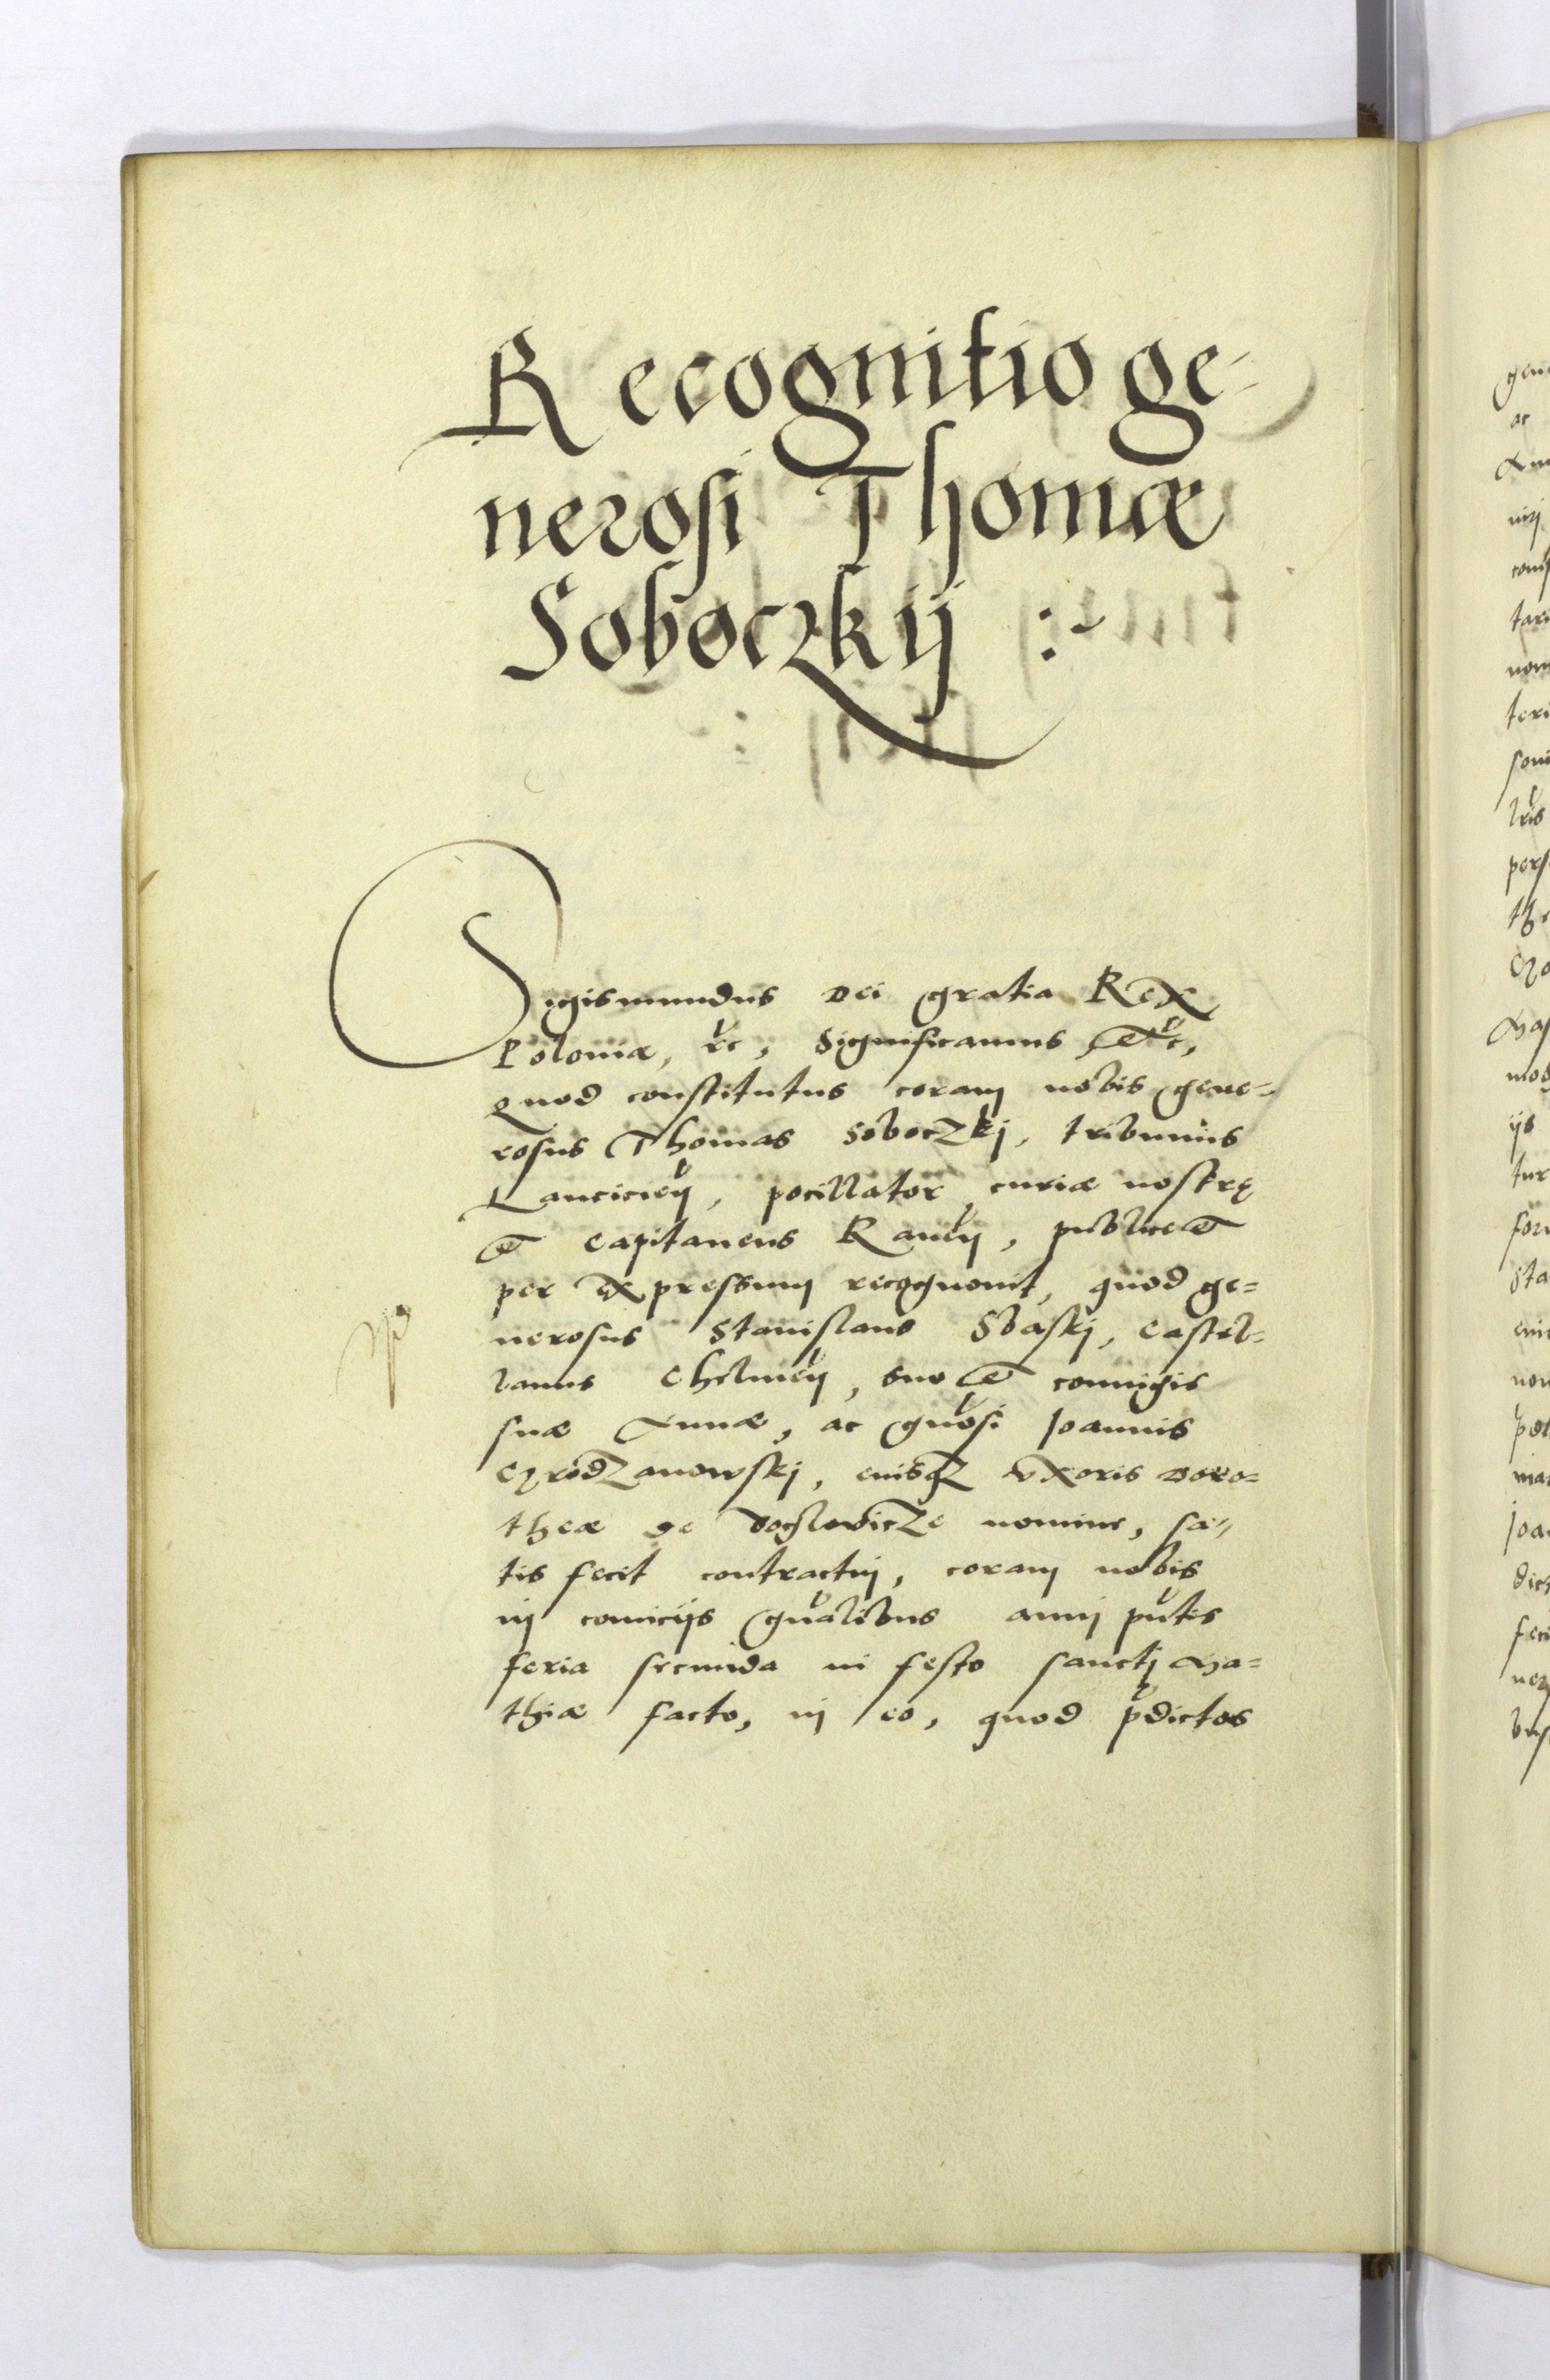 Recognitio ge-
nerosi Thomæ
Soboczkij :~
Sigismundus Dei gratia Rex
Poloniæ, &c, Significamus &c,
Quod constitutus coram nobis gene-
rosus Thomas Soboczkj, tribunus
Lancicieñ, pocillator curiæ nostrę
et Capitaneus Raueñ, publice et
per expressum recognouit, quod ge=
nerosus Stanislaus Sbąskj, Castel=
lanus Chelmeñ, suo et coniugis
suæ Annæ, ac gnosi Joannis
Chrodzanowskj, eiusqz vxoris Doro=
theæ de nomine, sa=
tis fecit contractuj, coram nobis
in comicijs gnalibus annj pntis
feria secunda in festo sanctj Ma=
thiæ facto, in eo, quod pdictos